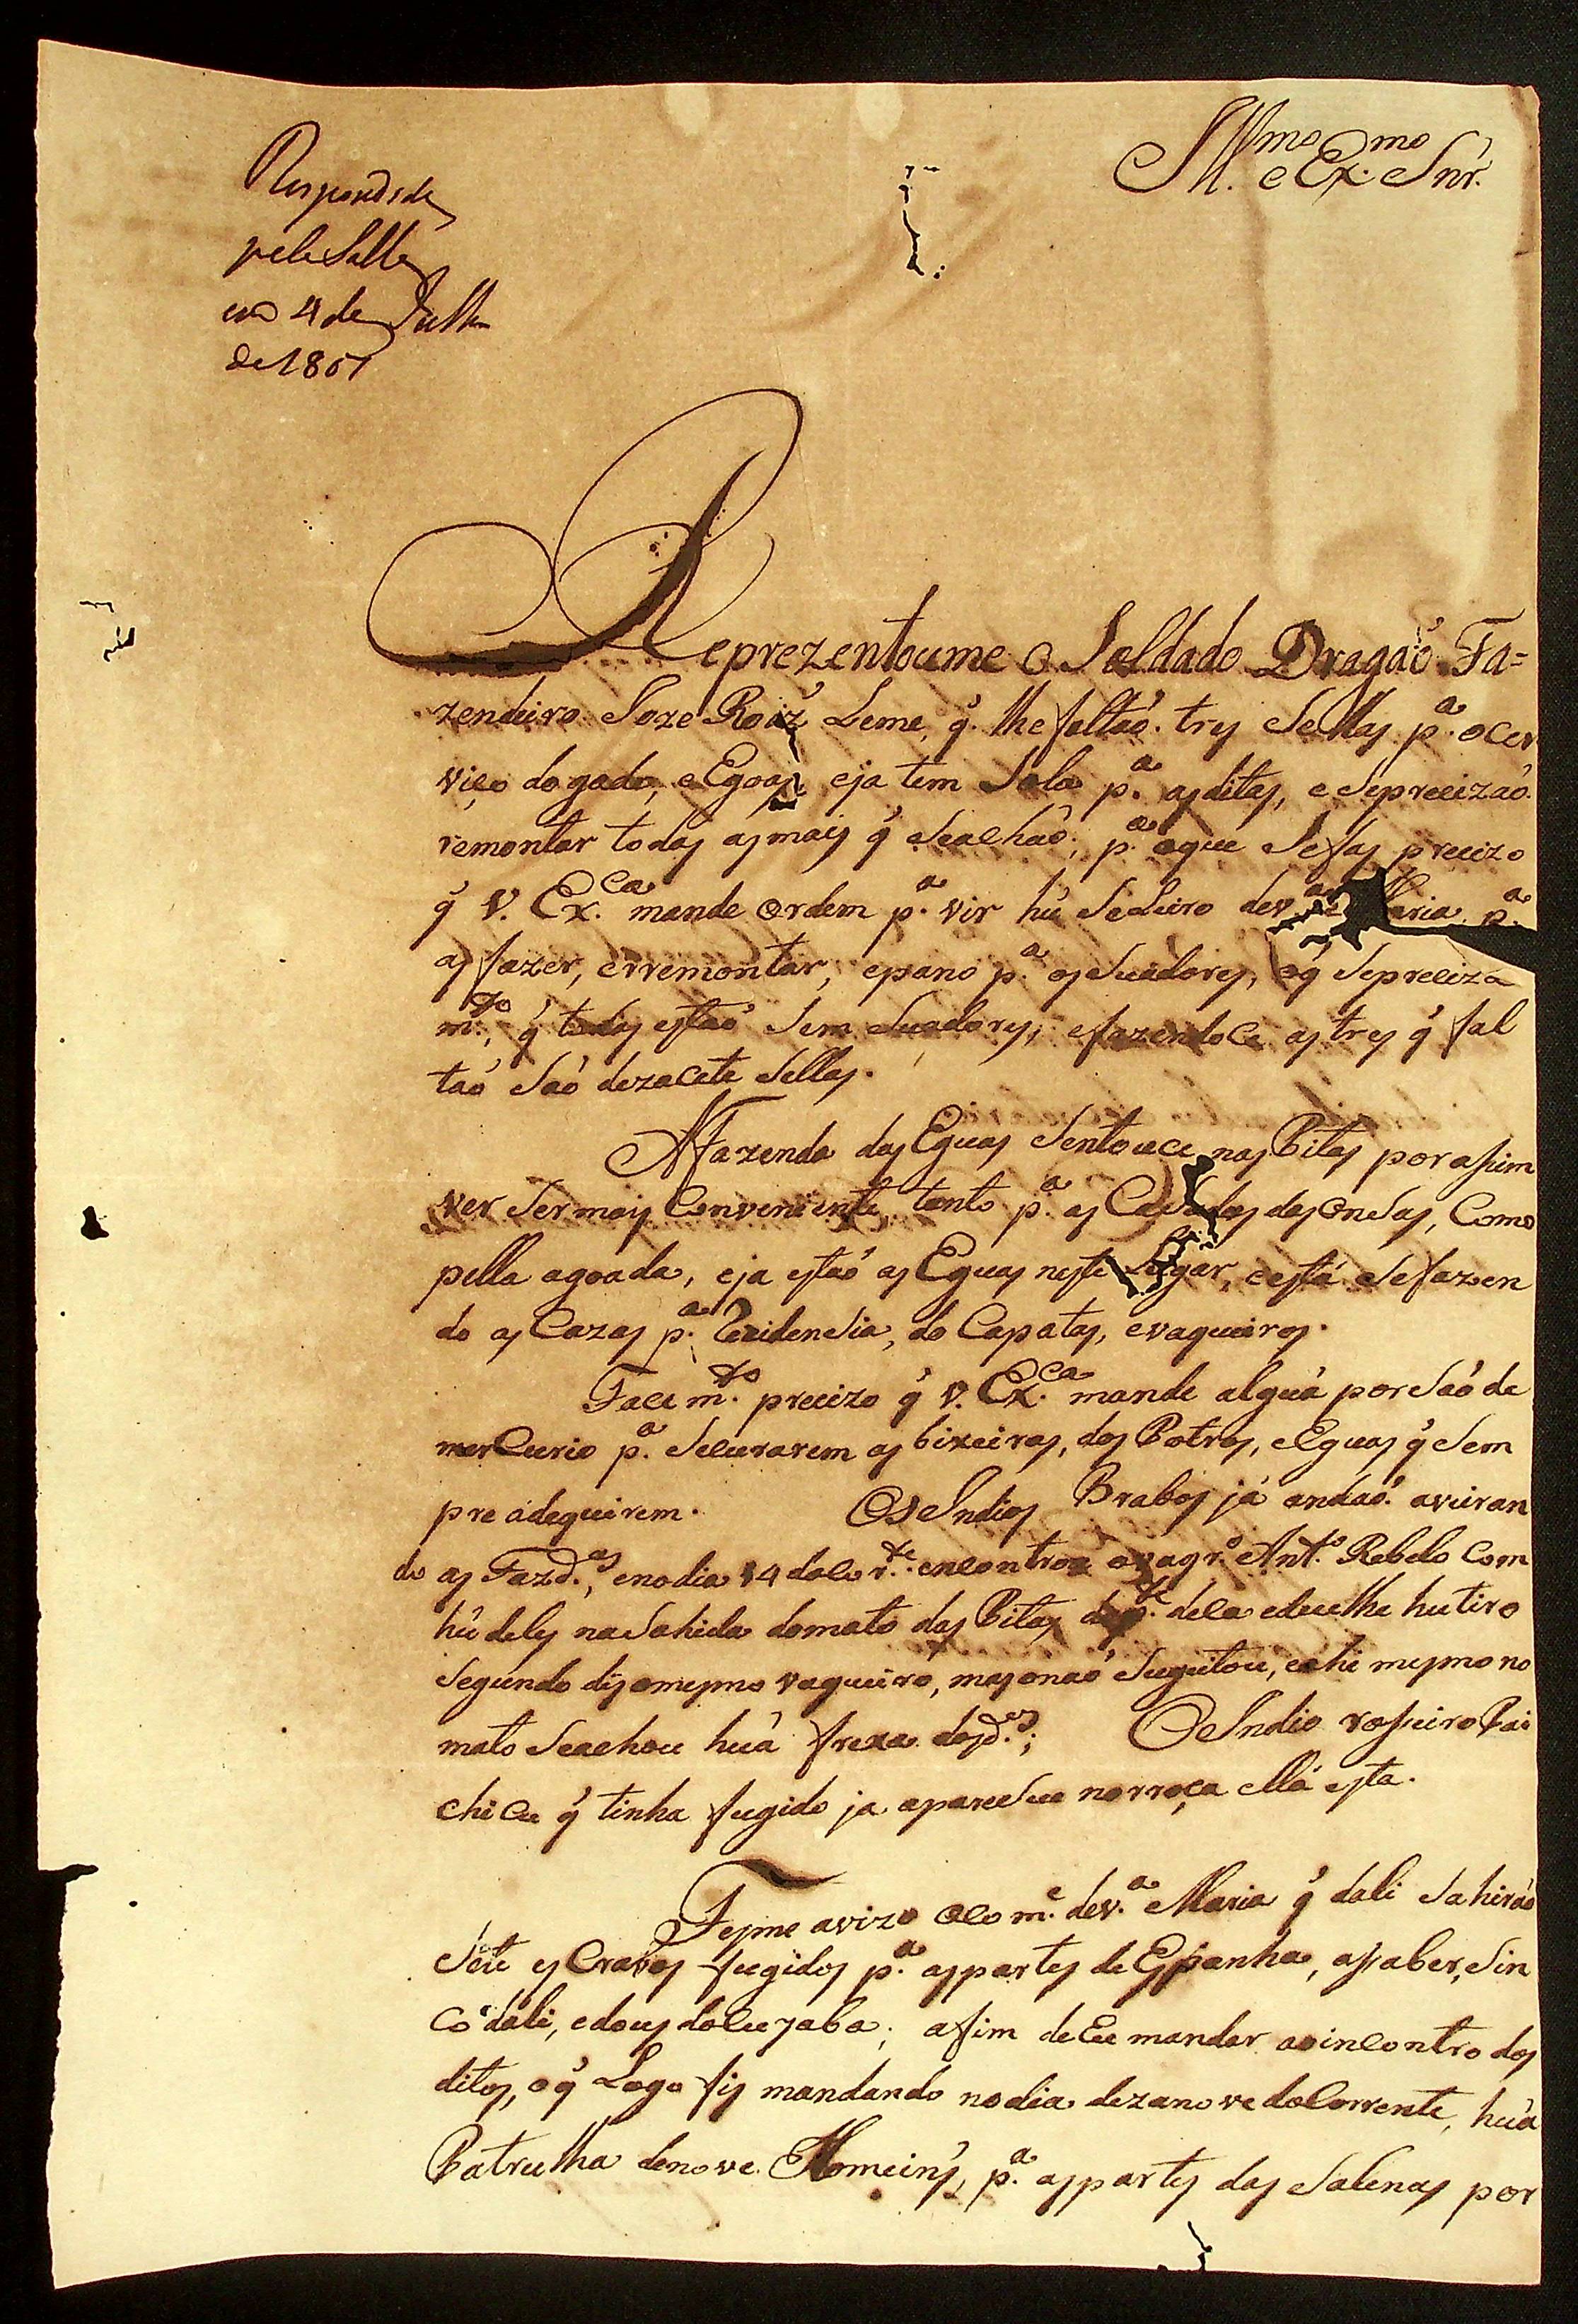 Ill.mo e Ex.mo Snr.
Respondida
pela Salla
em 4 de Julho
de 1801
Reprezentoume o Soldado Dragaõ Fa=
zendeiro Joze Roiz Leme, q̃ lhe faltaõ tres Sellas p.a o cer
viço do gado, e Egoas, e ja tem Sola p.a as ditas, e Seprecizaõ
remontar todas as mais q̃ Seachaõ; p.a oque Sefas precizo
q̃ V. Ex.ca mande ordem p.a vir hú Seleiro dev.a Maria p.a
as fazer, erremontar, epano p.a os Suadores, oq̃ Sepreciza
m.to, q̃ todas estaõ Sem Suadores; efazendoce as tres q̃ fal
taõ Saõ dezacete Sellas.
A Fazenda das Eguas Sentouce nas Pitas por asim
ver Sermais Conveniente, tanto p.a as das onsas, Como
pella agoada, eja estaõ as Eguas neste Lugar, eestá Sefazen
do as Cazas p.a Rezidensia, do Capatas, evaqueiros.
Face m.to precizo q̃ V. Ex.ca mande alguá porsaõ de
merCurio p.a Securarem as bixeiras, dos Potros, eEguas q̃ Sem
pre adequirem. Os Indios Brabos já andaõ aveiran
do as Fazd.as, enodia 14 docor.te encontrou ovaqr.o Ant.o Rebelo Com
hú deles naSahida domato das Pitas dap.te dela edeulhe hu tiro
Segundo dis omesmo vaqueiro, mas onaõ Sugeitou, eahi mesmo no
mato Seachou huá frexa dosd.os; O Indio rosseiro Pai
chicu q̃ tinha fugido ja apareseu narroça ellá esta.
Fesme avizo oCom.e dev.a Maria q̃ dali Sahiraõ
Sete esCravos fugidos p.a aspartes de Espanha, asaber, Sin
co dali, edous doCuyaba; afim deEu mandar aoincontro dos
ditos, oq̃ Logo fis mandando nodia dezanove doCorrente, huá
Patrulha denove Homeins, p.a aspartes das Salinas por